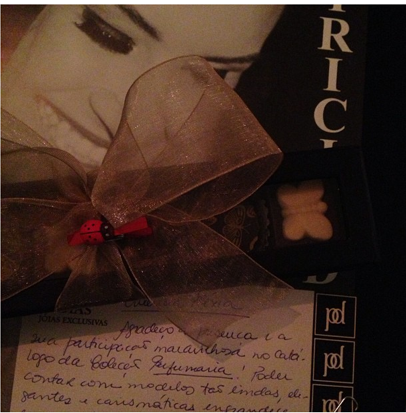 TRICI
D
JOIAS EXCLUSIVAS
Agradeço a
sua participação maravilhosa no catá-
logo da Coleção Perfumaria! Poder
contar com modelos tão lindas, ele-
gantes e carismáticas engrandece
pd
pd
pd